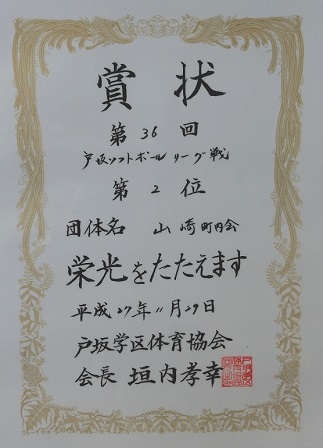 賞状
第36回
戸坂ソフトボールリーグ戦
第2位
団体名 山崎町内会
栄光をたたえます
平成27年11月29日
戸坂学区体育協会
会長 垣内孝幸